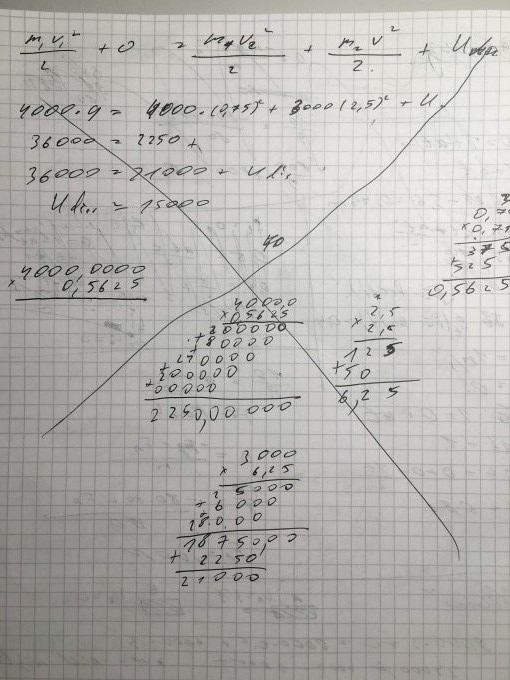 m₁v₁²/2 + 0 = m₁v₂²/2 + m₂v²/2 + U
4000·9 = 4000·(0,75)² + 3000(2,5)² + U
36000 = 2250 +
36000 = 21000 + U di..
U di.. = 15000
40
0,75
× 0,75
375
+ 525
0,5625
4000,0000
× 0,5625
4000,0
× 0,5625
200000
+ 80000
+ 240000
+ 200000
+ 00000
2250,00000
2,5
× 2,5
125
+ 50
6,25
3000
× 6,25
15000
+ 6000
18000
18750,00
+ 2250
21000